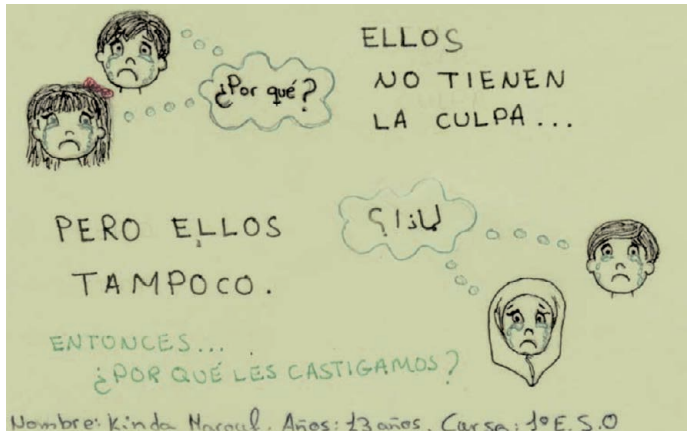 ¿Por qué?
ELLOS
NO TIENEN
LA CULPA...
PERO ELLOS
TAMPOCO.
لماذا؟
ENTONCES...
¿POR QUÉ LES CASTIGAMOS?
Nombre: Kinda Años: 13 años. Curso: 1º E.S.O